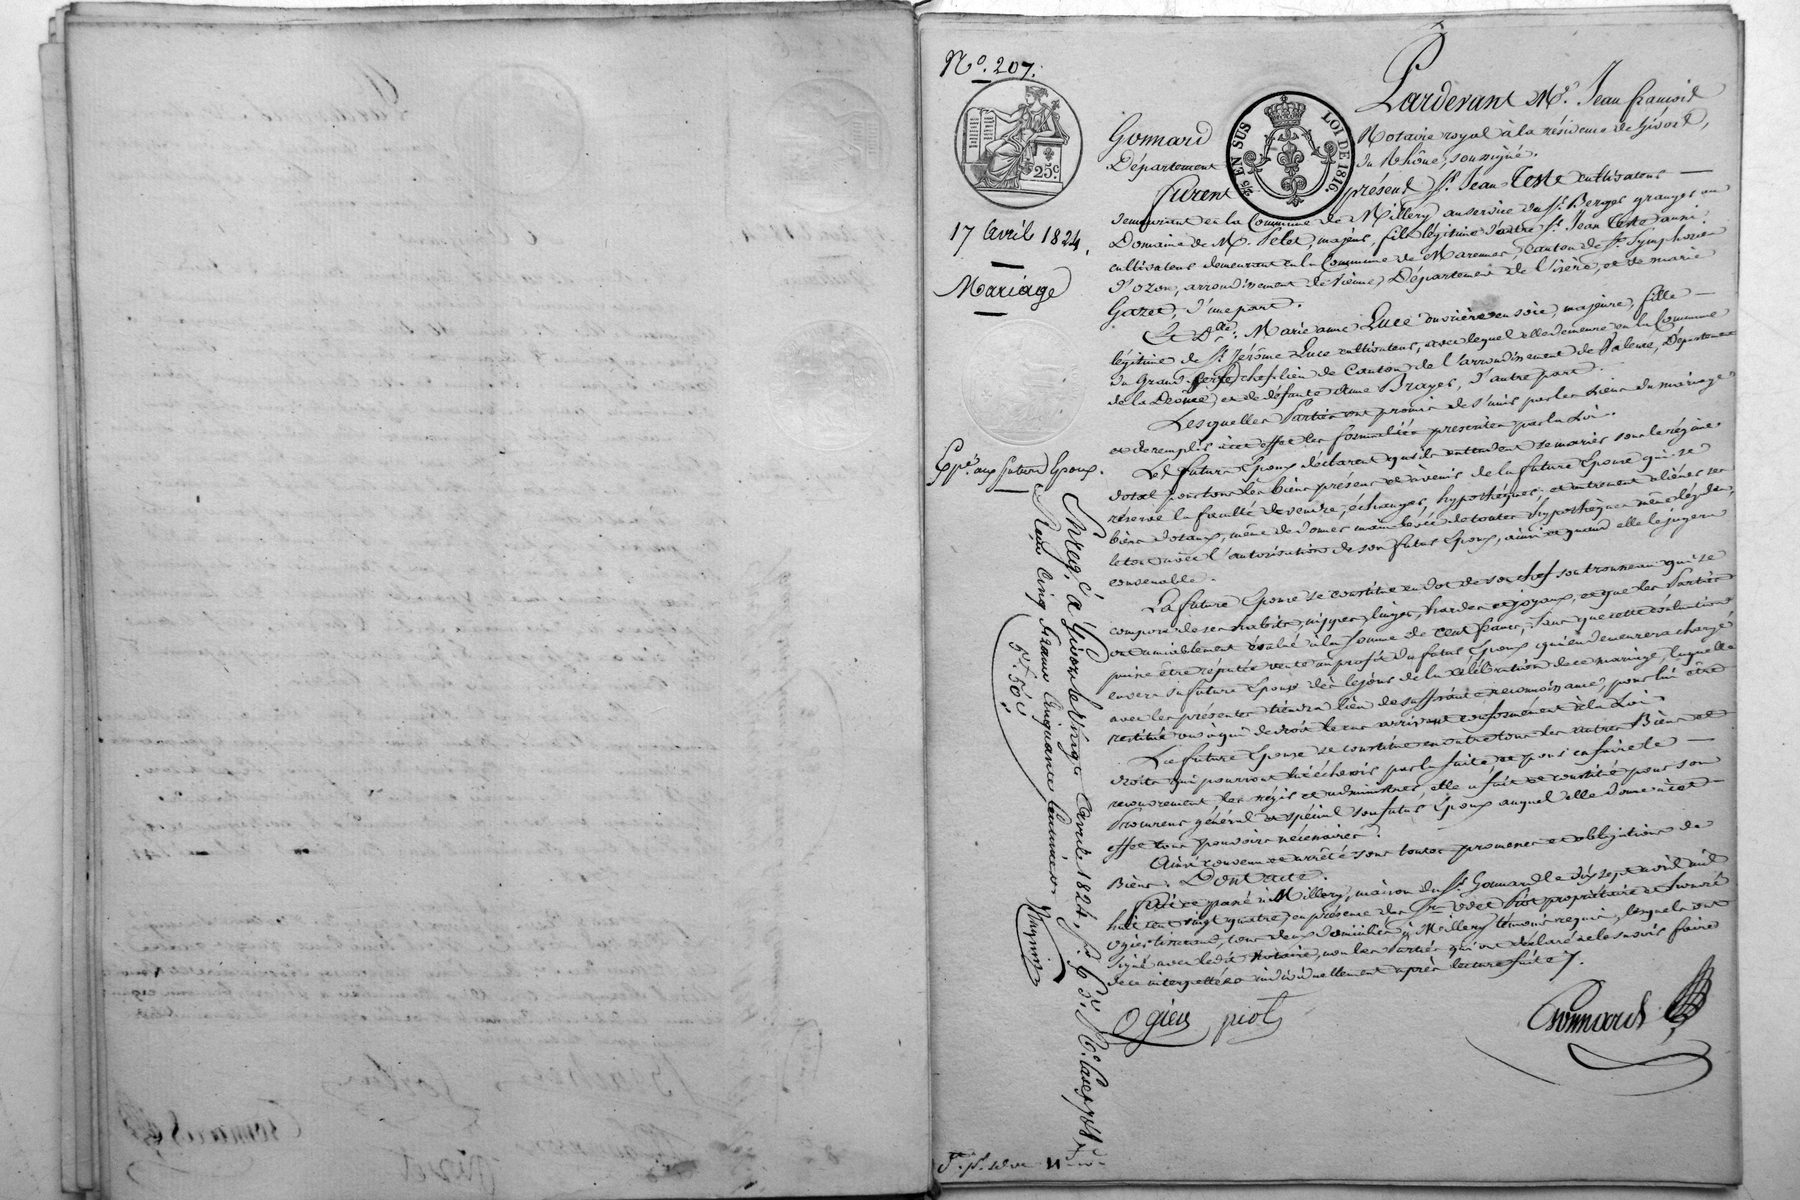 N.º 207.
25c
5/5 EN SUS LOI DE 1816.
17 avril 1824.
Mariage
Expé. aux futurs Epoux.
Pardevant Me. Jean françois
Gonnard Notaire royal à la résidence de Givors,
Département du Rhône, soussigné.
furent présent Sr. Jean Teste cultivateur
demeurant en la Commune de Millery au service du Sr. Berger granger au
Domaine de M. Pelet, majeur, fils légitime d'autre Sr. Jean Teste aussi
cultivateur demeurant en la Commune de Marennes, Canton de St. Symphorien
d'Ozon, arrondissement de Vienne, Département de l'isère, et de marie
Gazet, d'une part.
Et Dlle. Marie anne Luce ouvrière en soie, majeure, fille
légitime de Sr. Jérôme Luce cultivateur, avec lequel elle demeure en la Commune
du Grand Serre, chef-lieu de Canton de l'arrondissement de Valence, Département
de la Drôme, et de défunte Anne Brayer, d'autre part.
Lesquelles Parties ont promis de s'unir par les liens du mariage
et de remplir à cet effet les formalités prescrites par la Loi.
Les futurs Epoux déclarent qu'ils entendent se marier sous le régime
dotal pour tous les biens présens et à venir de la future Epouse qui se
réserve la faculté de vendre, échanger, hypothéquer, et autrement aliéner ses
biens dotaux, même de donner main levée de toutes hypothèques même légales,
le tout avec l'autorisation de son futur Epoux, ainsi et quand elle le jugera
convenable.
La future Epouse se constitue en dot de son chef son trousseau qui se
compose de ses habits, nippes, linges, hardes et joyaux, et que les Parties
ont amiablement évalué à la somme de cent francs, sans que cette évaluation
puisse être réputée vente au profit du futur Epoux qui en demeurera chargé
envers sa future Epouse dès le jour de la célébration de ce mariage, laquelle
avec les présentes tiendra lieu de suffisante reconnoissance, pour lui être
restitué ou à qui de droit le cas arrivant conformément à la Loi.
La future Epouse se constitue en outre tous les autres Biens et
droits qui pourront lui échevir par la suite et pour en faire le
recouvrement, les régir et administrer, elle a fait et constitué pour son
Procureur général et spécial son futur Epoux auquel elle donne à cet
effet tous pouvoirs nécessaires.
Ainsi convenu et arrêté sous toutes promesses et obligations de
Biens. Dont acte.
fait et passé à Millery, maison du Sr. Gonnard le dix sept avril mil
huit cent vingt quatre, en présence des Srs. Piot propriétaire et
Ogier tisserand, tous deux domiciliés à Millery témoins requis, lesquels ont
signé avec ledit Notaire, non les Parties qui ont déclaré ne le savoir faire
de ce interpellées individuellement après lecture faite.
Ogier piot Gonnard
Enreg. à Givors le vingt avril 1824,
Reçu cinq francs cinquante centimes.
5f. 50c